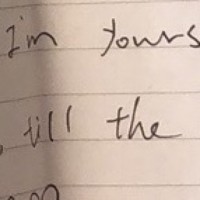 I'm yours
till the